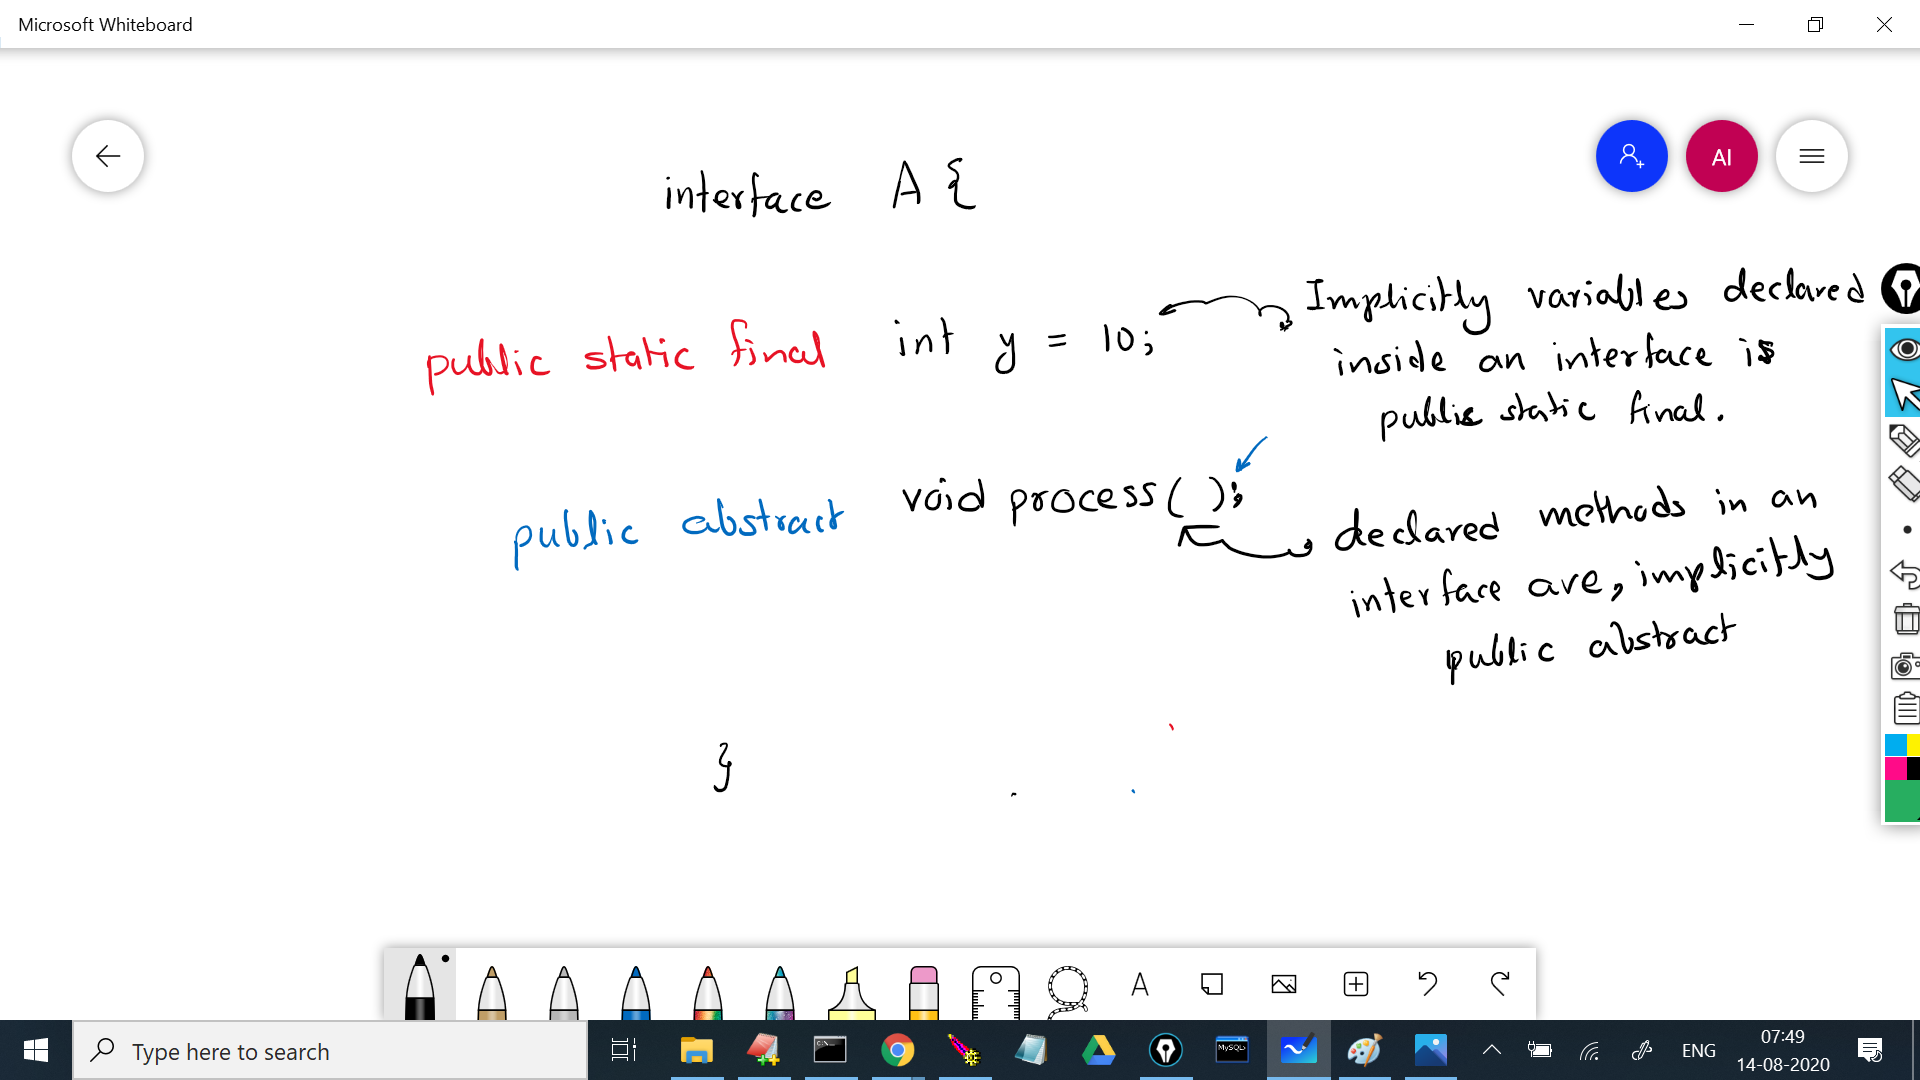 Microsoft Whiteboard
AI
interface A {
public static final int y = 10;
Implicitly variables declared
inside an interface is
public static final.
public abstract void process ( );
declared methods in an
interface are, implicitly
public abstract
}
A
Type here to search
MySQL
ENG
07:49
14-08-2020